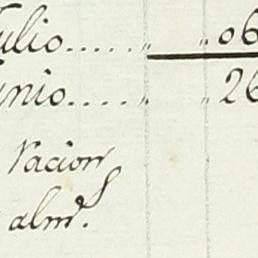 ulio..... " " 06
unio.... " " 26
Vacion
alm.s